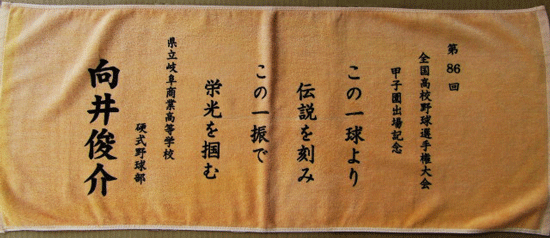 第86回
全国高校野球選手権大会
甲子園出場記念
この一球より
伝説を刻み
この一振で
栄光を掴む
県立岐阜商業高等学校
硬式野球部
向井俊介